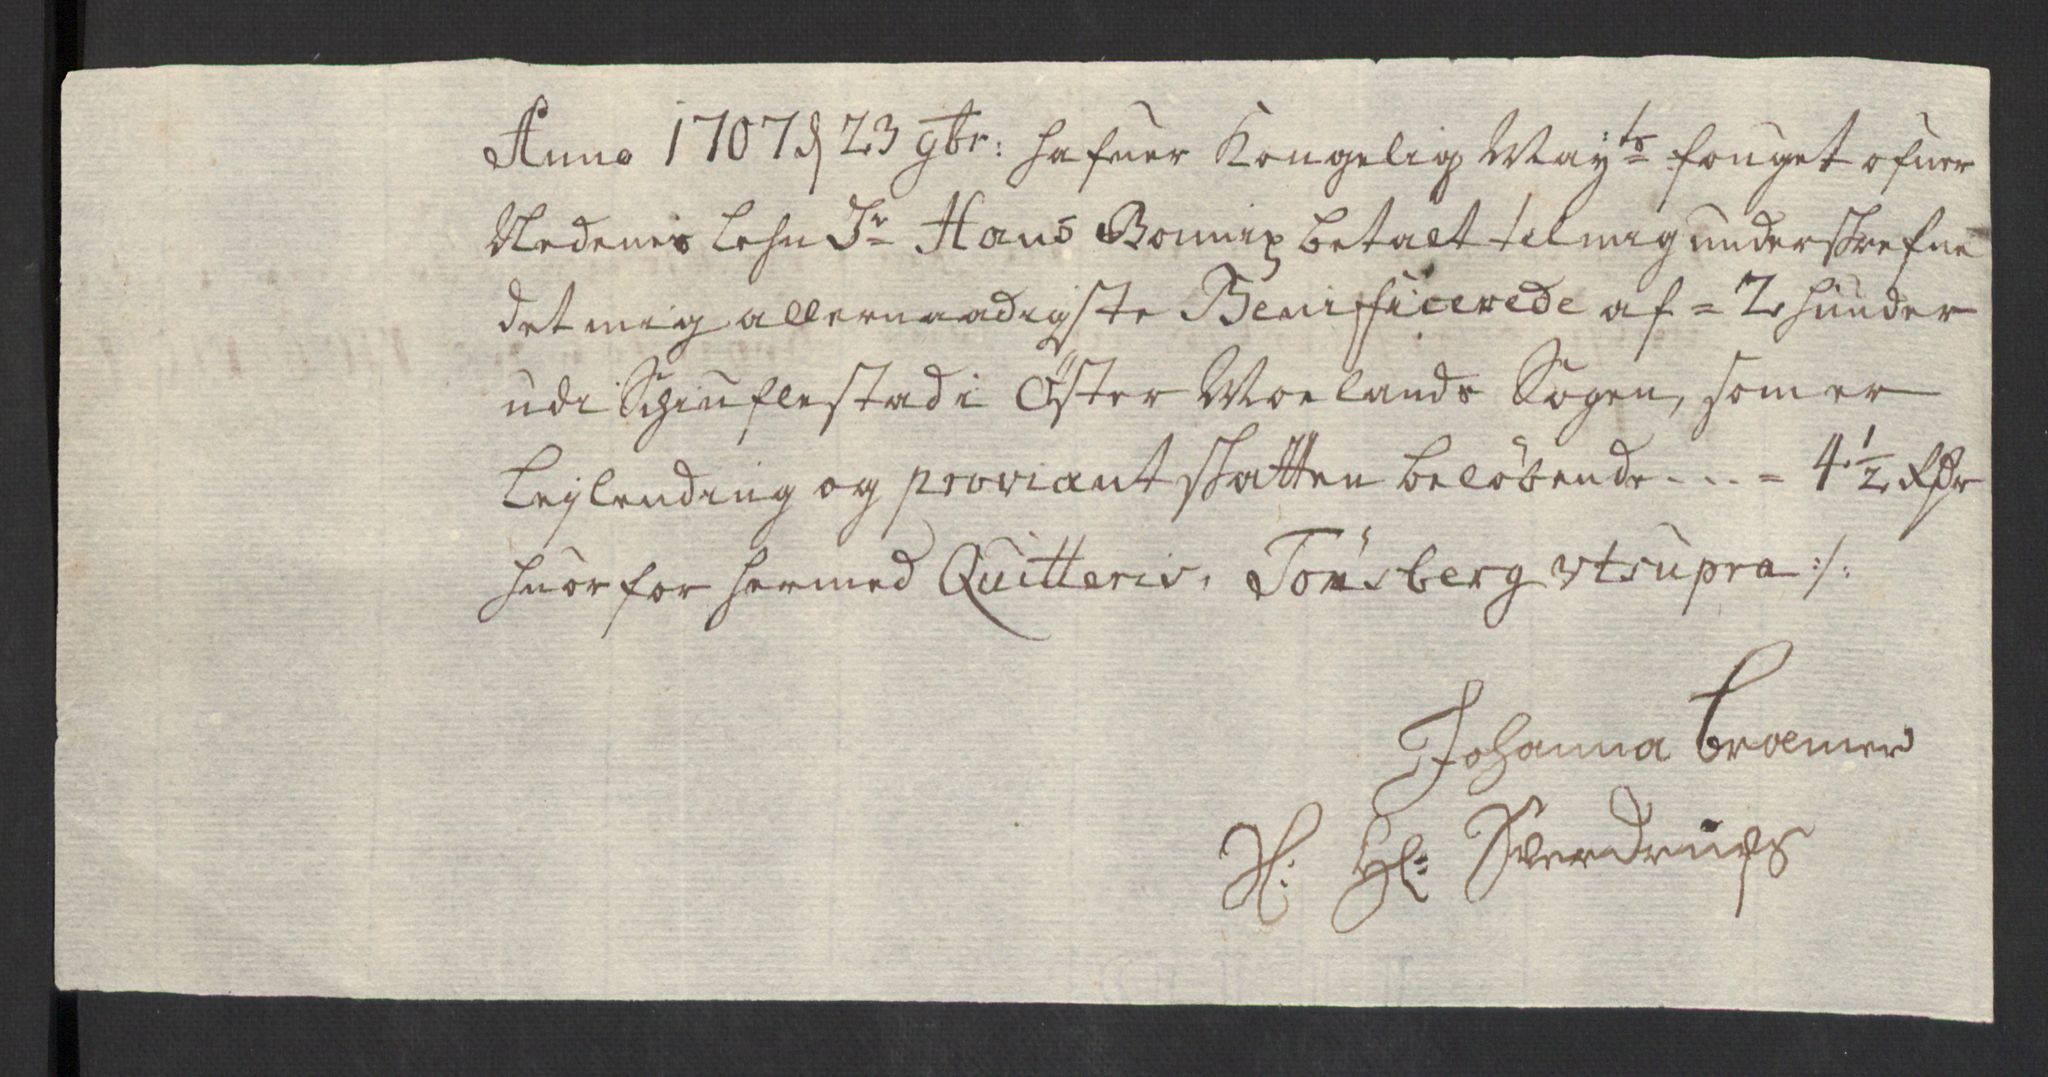 Anno 1707 d 23 9br: hafuer Kongelig May:ts fouget ofuer
Nedenes Lehn Sr Hans Bonnix betalt til mig underskrefne
det mig allernaadigste Benifficerede af = 2 hunder
udi Schiuflestad i Öster Moelands Sogen, som er
Leylending og proviant skatten belöbende - - - = 4 1/2 Rdr
huor for hermed Quitteris, Tönsberg vt supra :/:
Johanna Croemer
Sl. Hl: Sverdrups